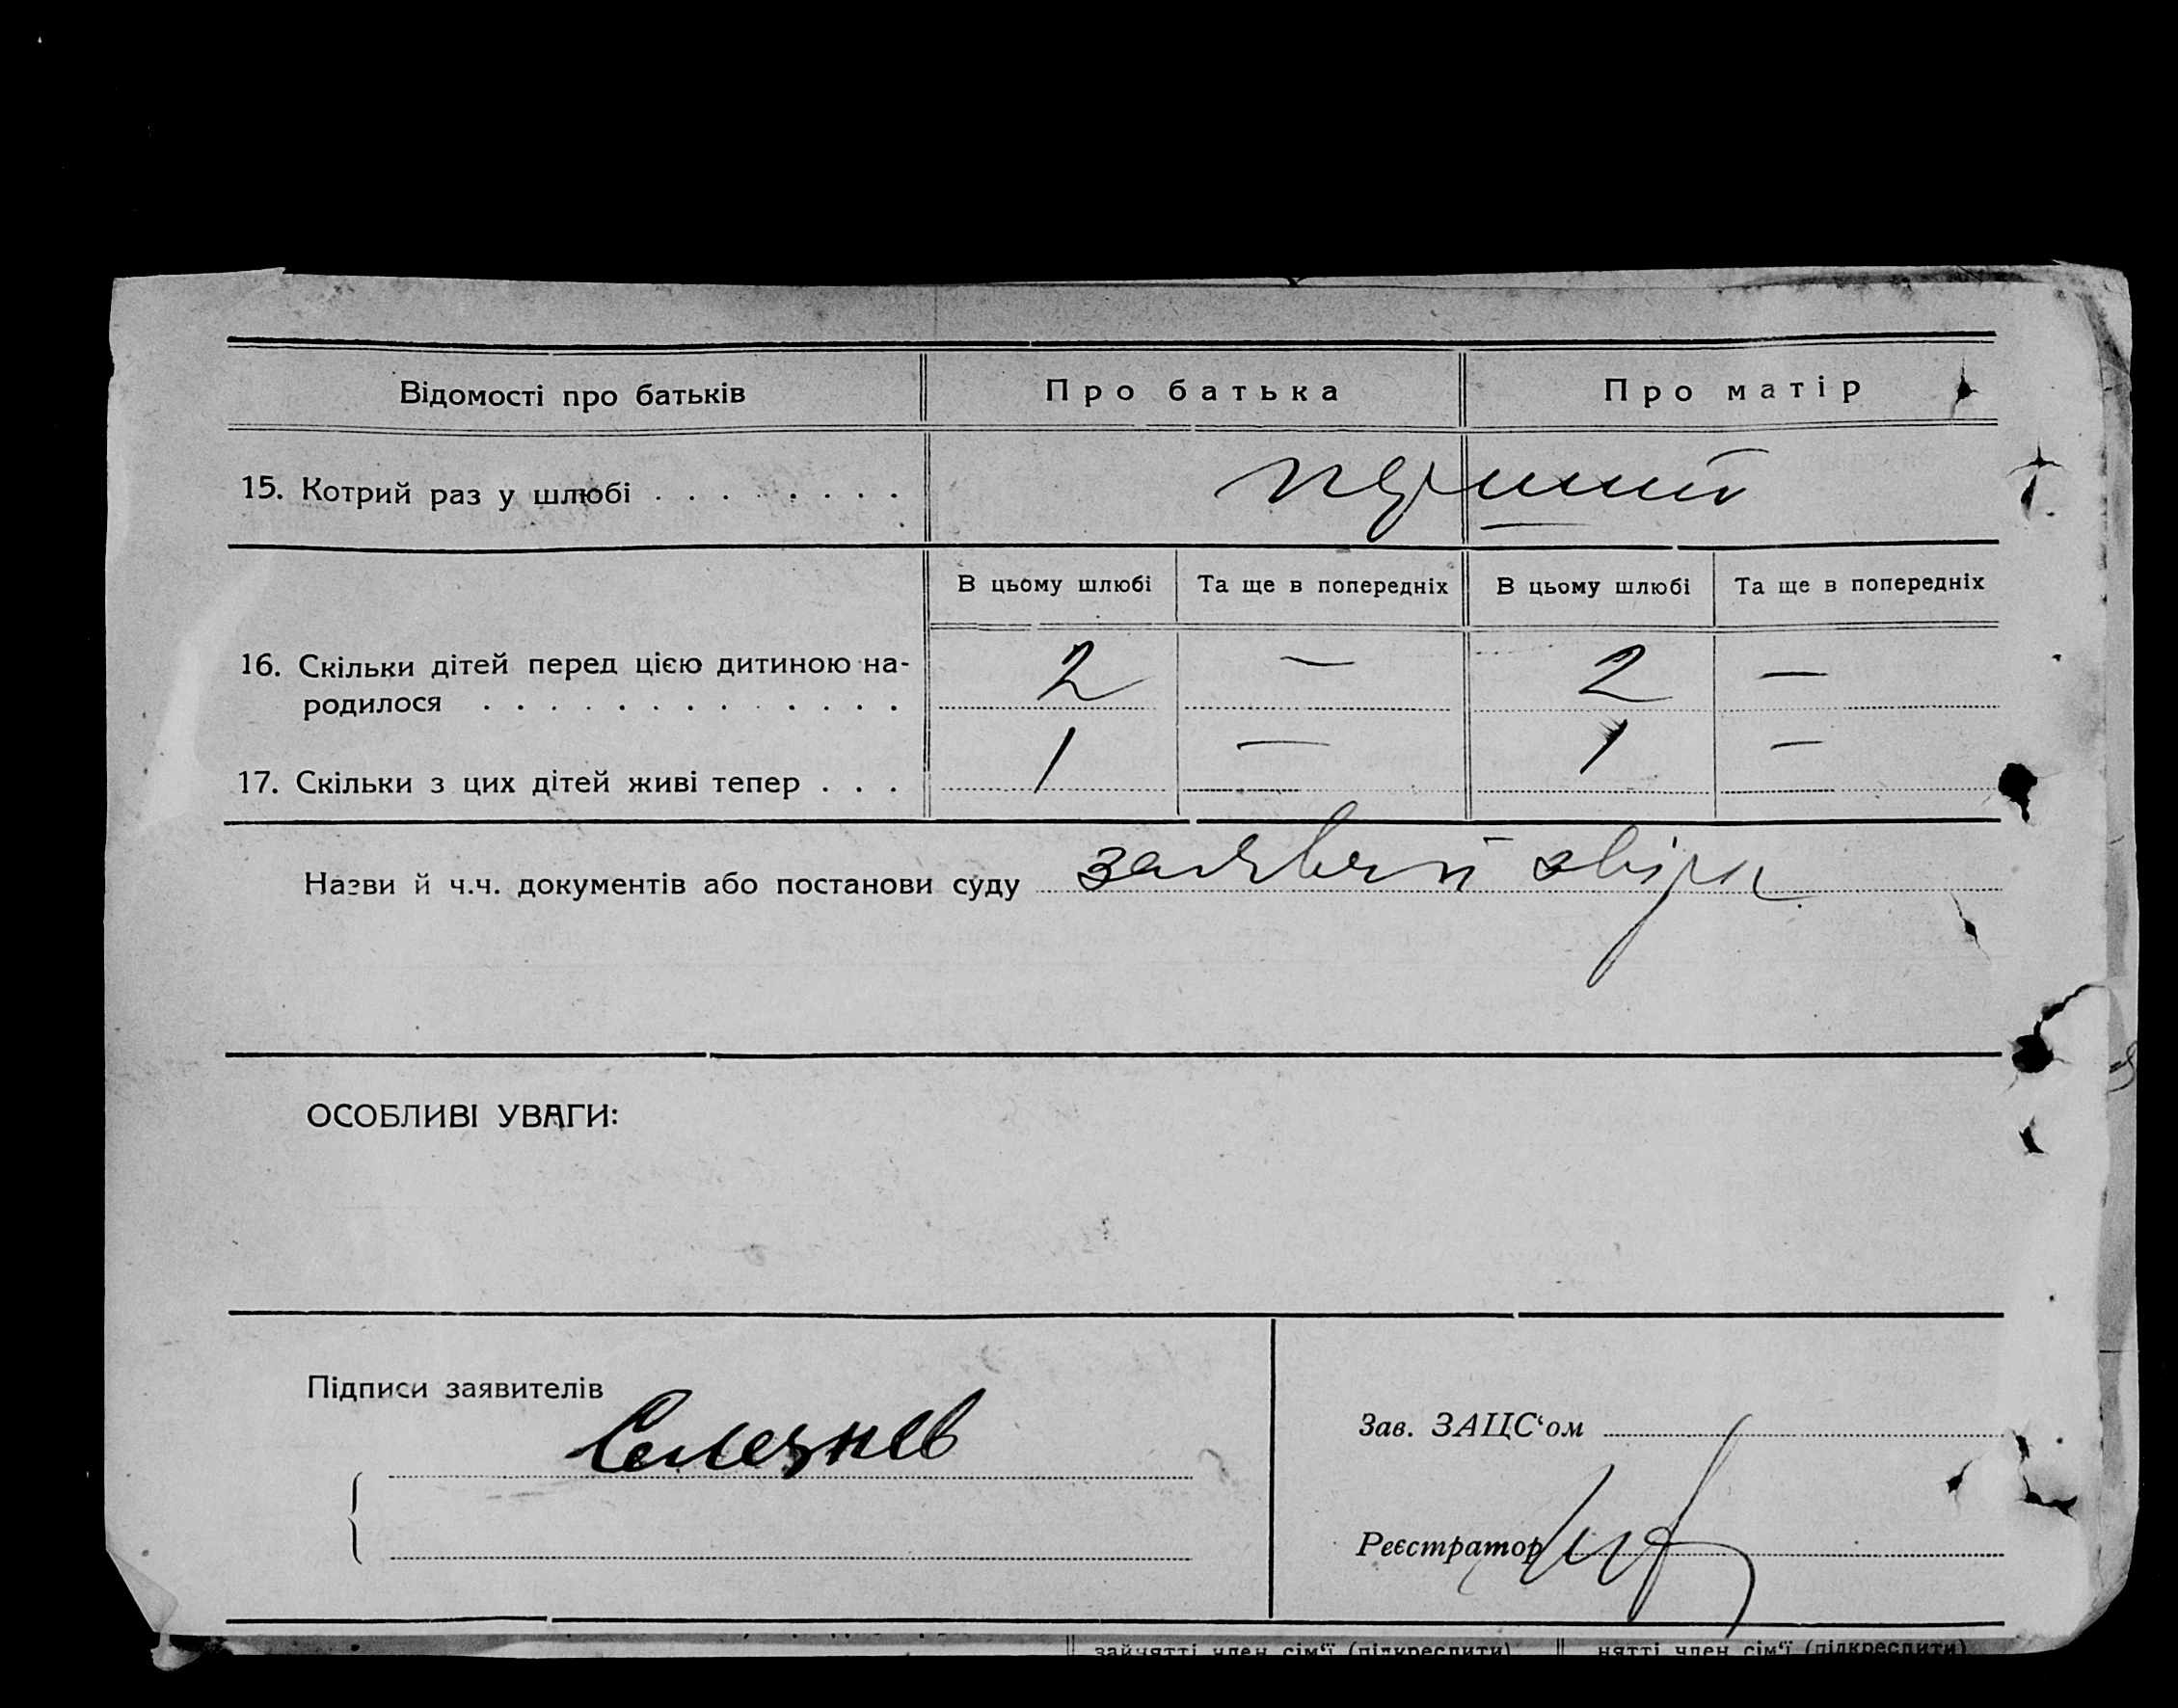 Відомості про батьків
Про батька
Про матір
15. Котрий раз у шлюбі . . . . . . . .
перший
В цьому шлюбі
Та ще в попередніх
В цьому шлюбі
Та ще в попередніх
16. Скільки дітей перед цією дитиною на-
родилося . . . . . . . . . . . . . .
2 — 2 —
17. Скільки з цих дітей живі тепер . . .
1 — 1 —
Назви й ч.ч. документів або постанови суду
ОСОБЛИВІ УВАГИ:
Підписи заявителів
Селезнев
Зав. ЗАЦС‘ом
Реєстратор
зайнятті член сім‘ї (підкреслити)
нятті член сім‘ї (підкреслити)